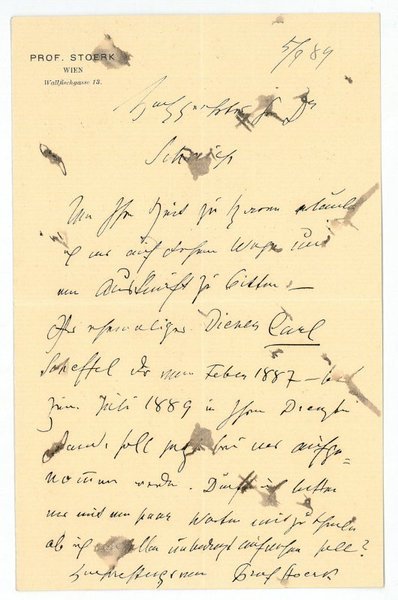 PROF. STOERK
WIEN
Wallfischgasse 13.
89
Hochgeehrter H Dr
Um Ihre Zeit zu erlaube
ich mir auf diesem Wege
um Auskunft zu bitten —
Ihr ehemaliger Diener Carl
Scheffel der vom Feber 1887 – bis
zum Juli 1889 in Ihren Diensten
stand, soll jetzt bei mir aufge-
nommen werden. Dürft ich bitten
mir mit ein paar Worten mitzutheilen
ob ich unbedingt aufnehmen soll?
Prof Stoerk